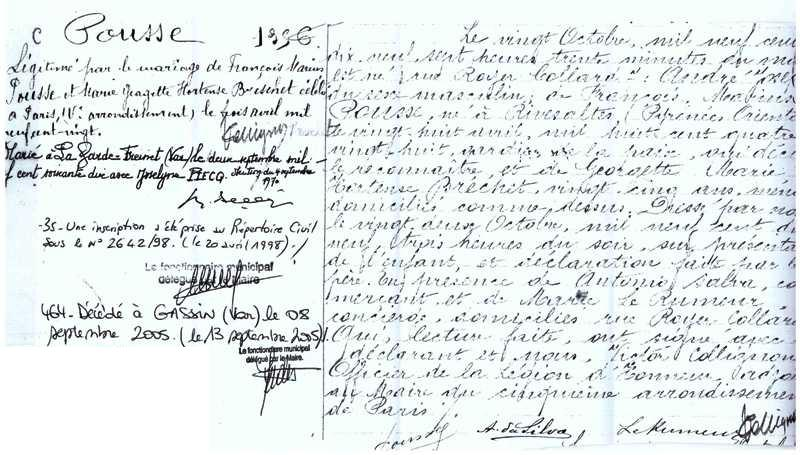 C Pousse 1996
Légitimé par le mariage de François Marius
Pousse et Marie Georgette Hortense Breschet célébré
à Paris, (V.e arrondissement) le trois avril mil
neuf cent vingt.
Marié à La Garde-Freinet (Var) le deux septembre mil
neuf cent soixante dix avec Jocelyne FLECQ.
4 septembre
1970
-35- Une inscription a été prise au Répertoire Civil
sous le N° 2642/98. (le 20 avril 1998)./
Le fonctionnaire municipal
délégué par le Maire
464- Décédé à GASSIN (Var) le 08
septembre 2005. (le 13 septembre 2005)/.
Le fonctionnaire municipal
délégué par le Maire.
Le vingt Octobre, mil neuf cent
dix neuf sept heures trente minutes du
est né, rue Royer Collard : André
du sexe masculin, de François, Marius
POUSSE, né à Rivesaltes (Pyrénées Orient
le vingt huit avril, mil huit cent quatre
vingt huit, gardien de la paix qui déc
le reconnaître, et de Georgette Marie
Hortense Bréchet, vingt cinq ans, mén
domiciliés comme dessus. Dressé par no
le vingt deux Octobre, mil neuf cent di
neuf, trois heures du soir, sur présenta
de l'enfant, et déclaration faite par le
père. En présence de Antonio
merçant et de Marie Le Rumeur
concierge, domiciliés rue Royer Collard
Qui, lecture faite, ont signé avec
déclarant et nous, Victor Collignon
Officier de la Légion d'Honneur, adjoi
au Maire du cinquième arrondissemen
de Paris
A. da Silva Le Rumeur